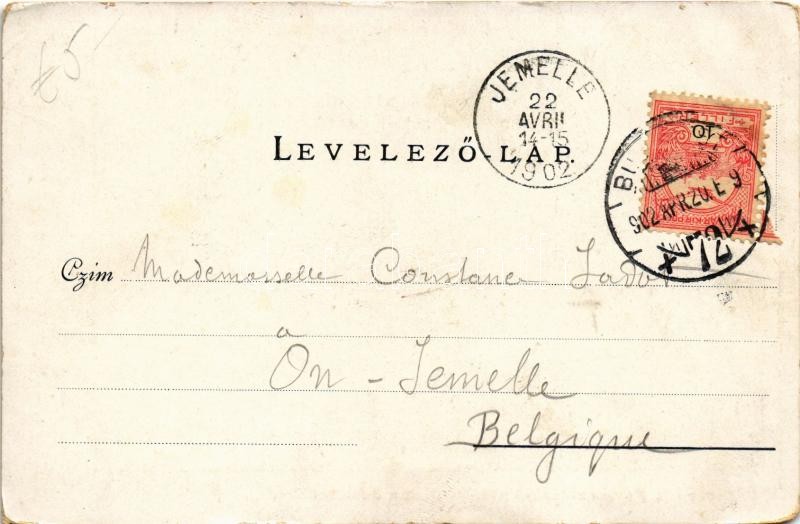 £5-
JEMELLE
22
AVRIL
14-15
1902
LEVELEZŐ-LAP.
10
FILLÉR
902 APR. 20. E 9
Czim Mademoiselle Constance
à
On - Jemelle
Belgique